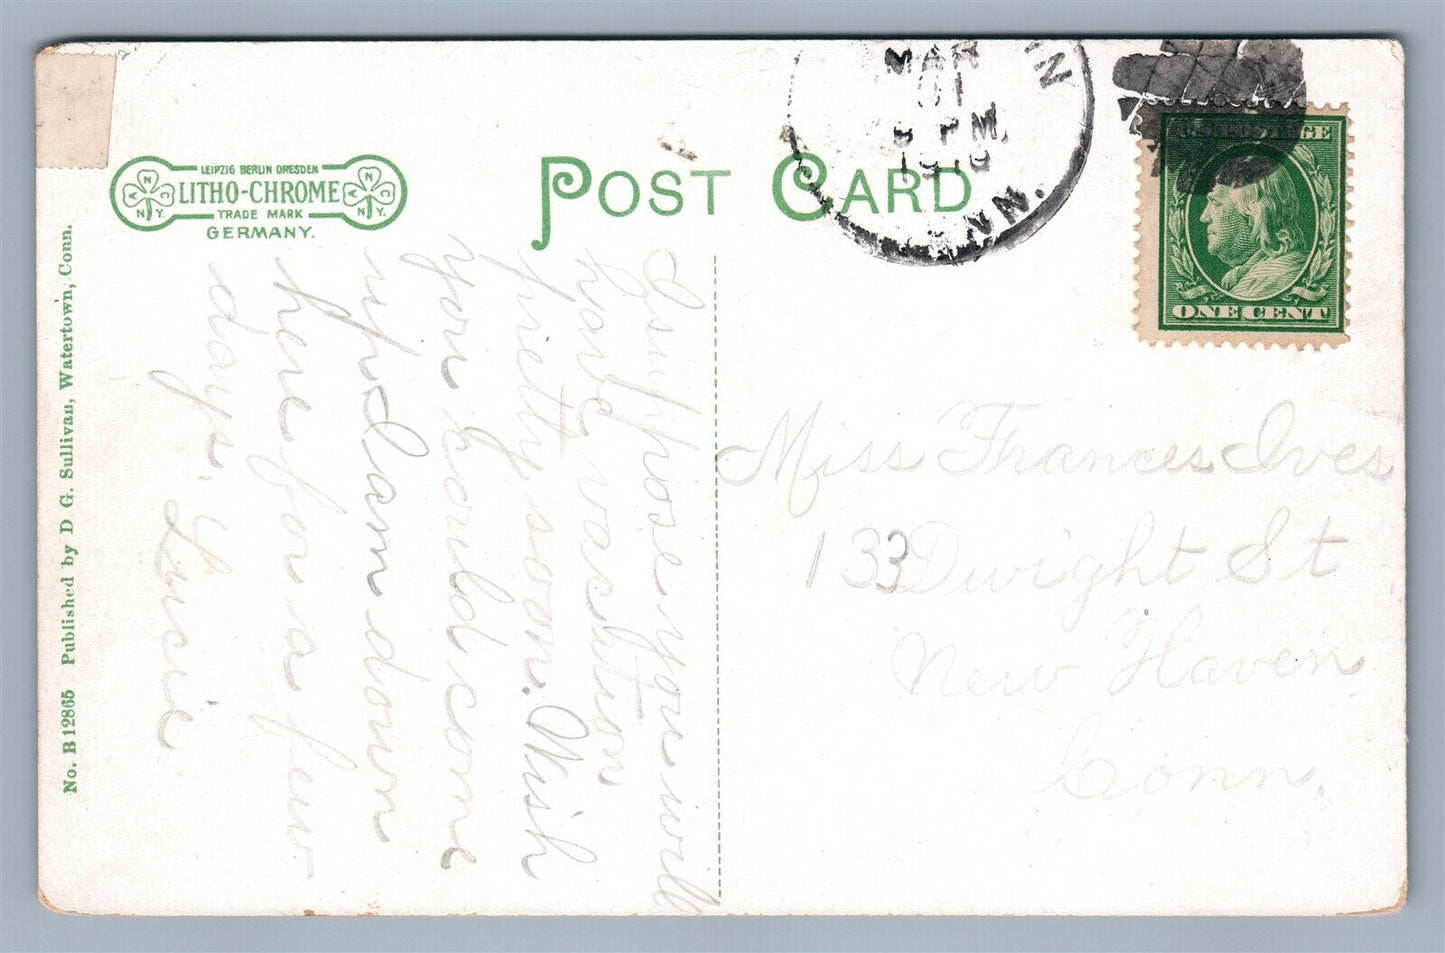 LEIPZIG BERLIN DRESDEN
LITHO-CHROME
TRADE MARK
GERMANY.
N A C N.Y.
N A C N.Y.
POST CARD
MAR
01
PM
1910
NN.
U.S. POSTAGE
ONE CENT
No. B 12865 Published by D. G. Sullivan, Watertown, Conn.
I suppose you will
have vacation
pretty soon. Wish
you could come
up I am down
here for a few
days.
Lucie
Miss Frances Ives
133 Dwight St
New Haven
Conn.